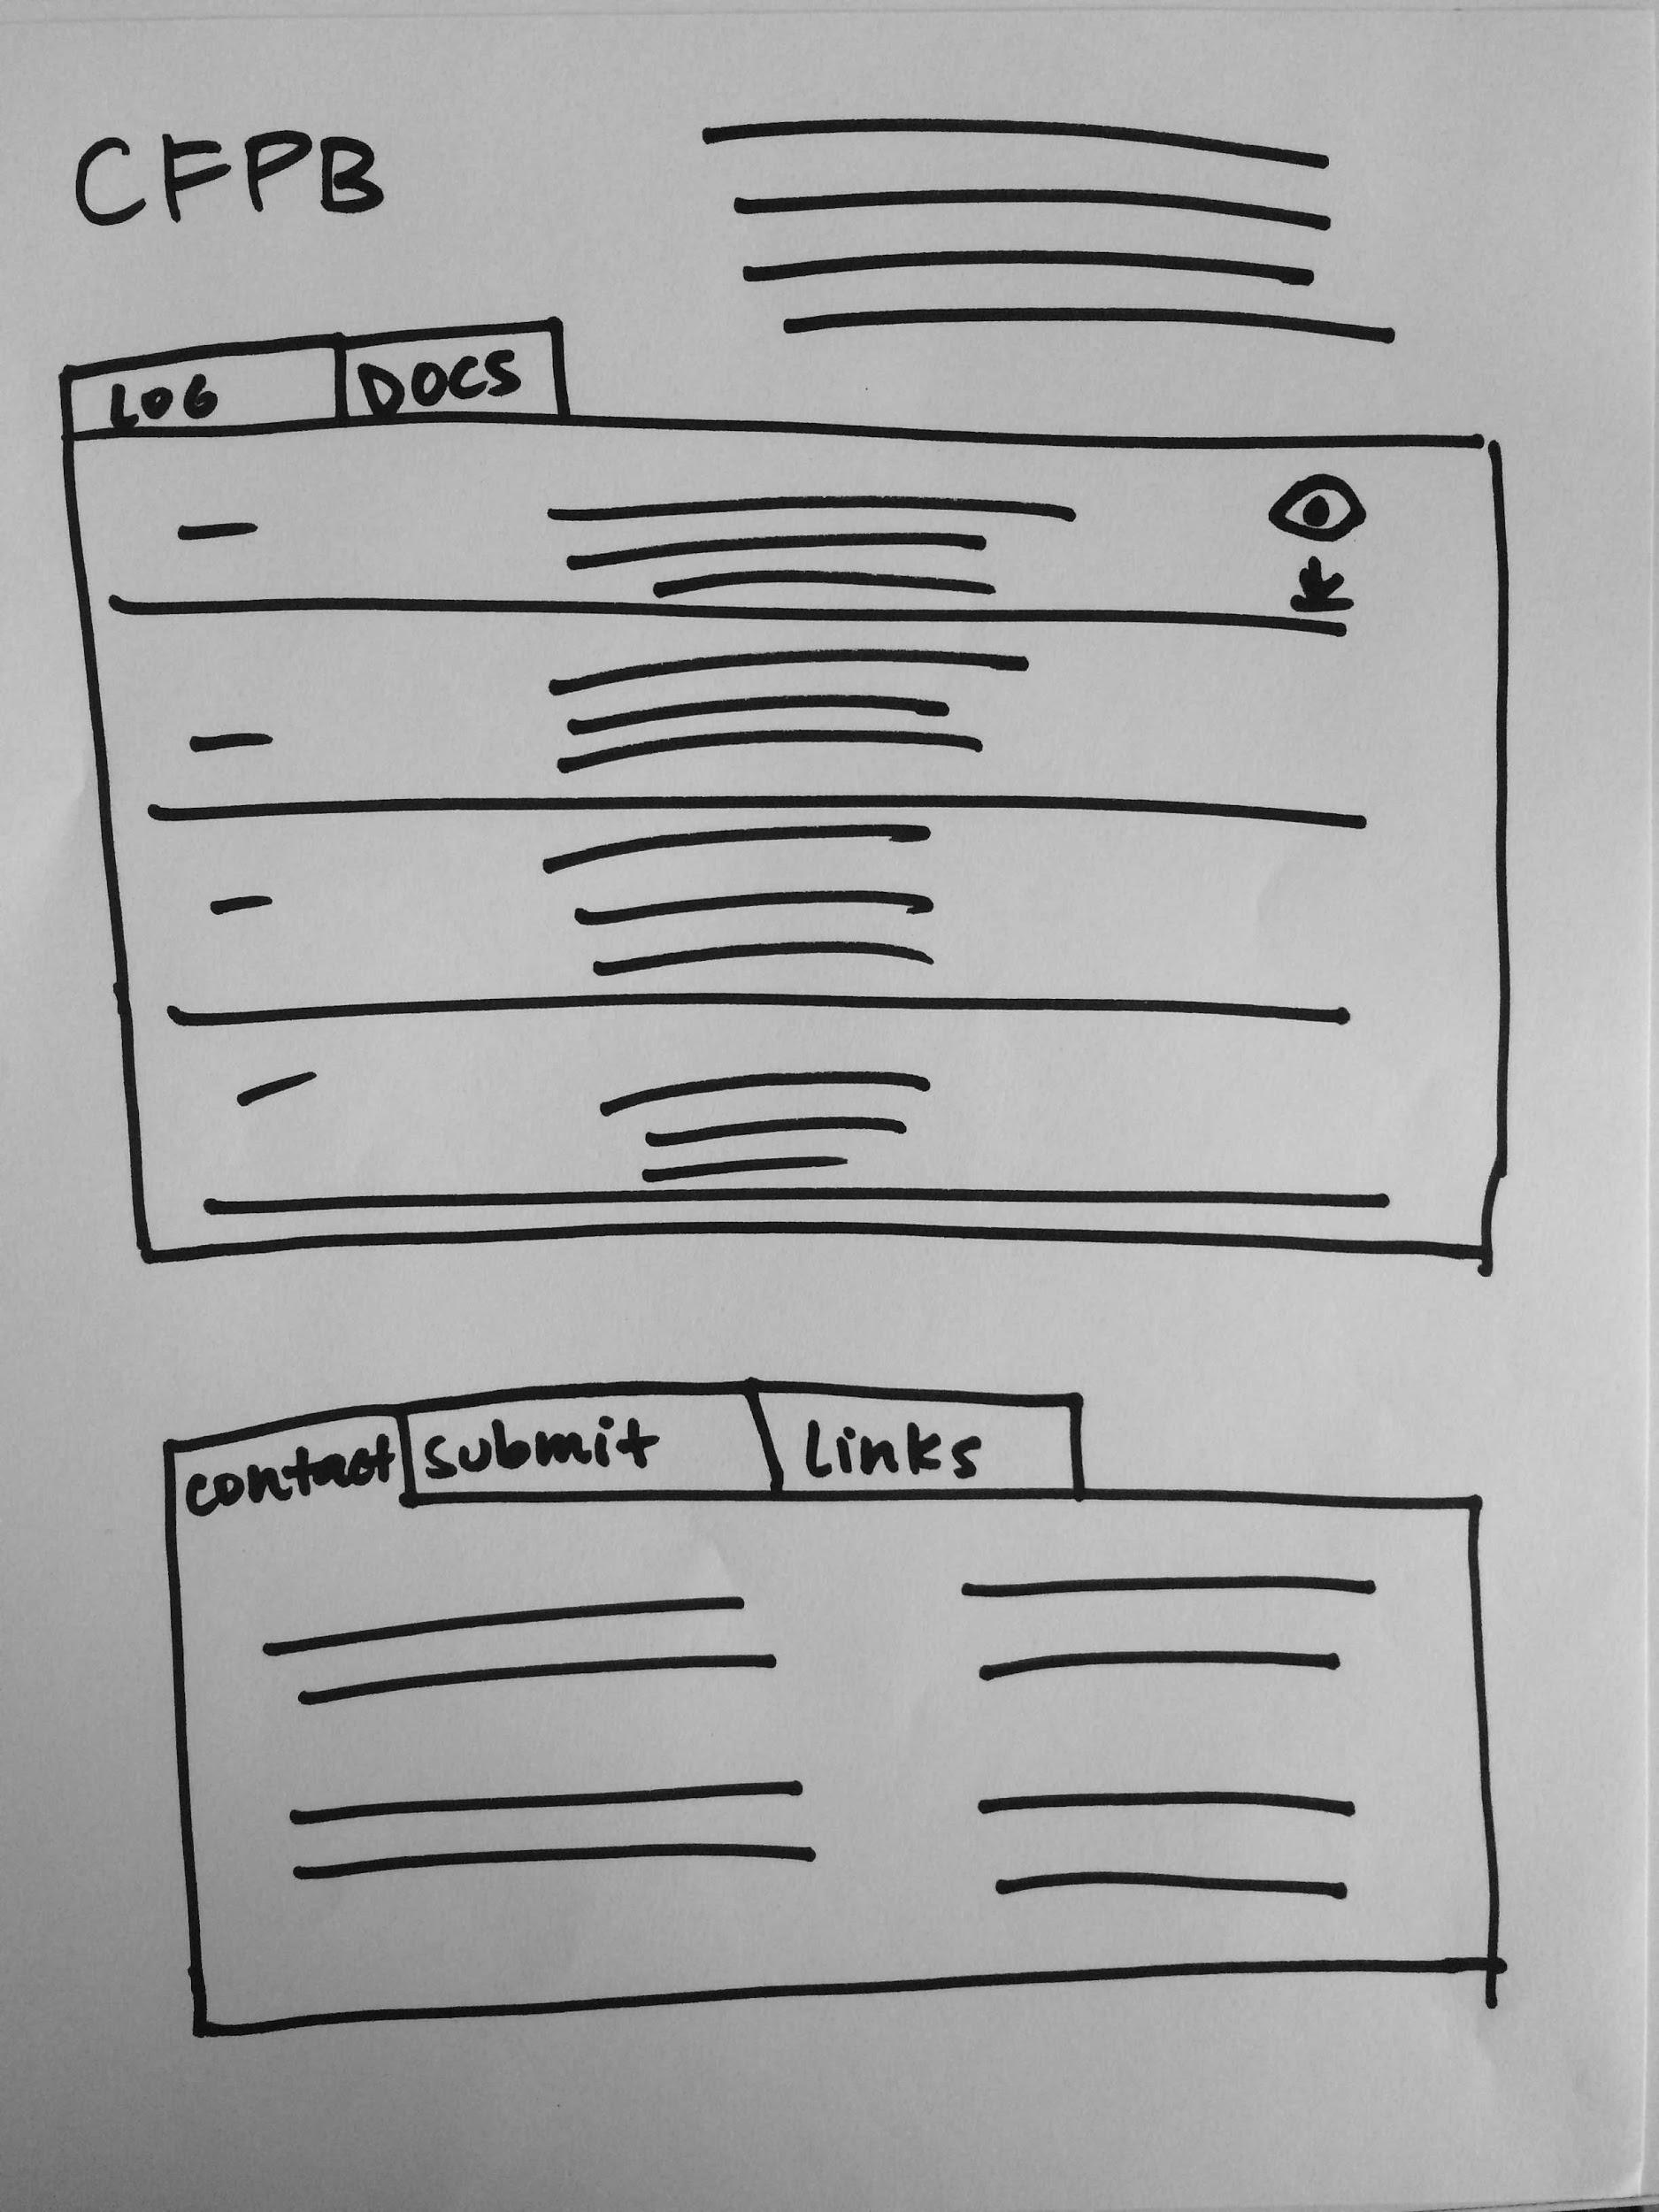 CFPB
LOG DOCS
contact submit Links